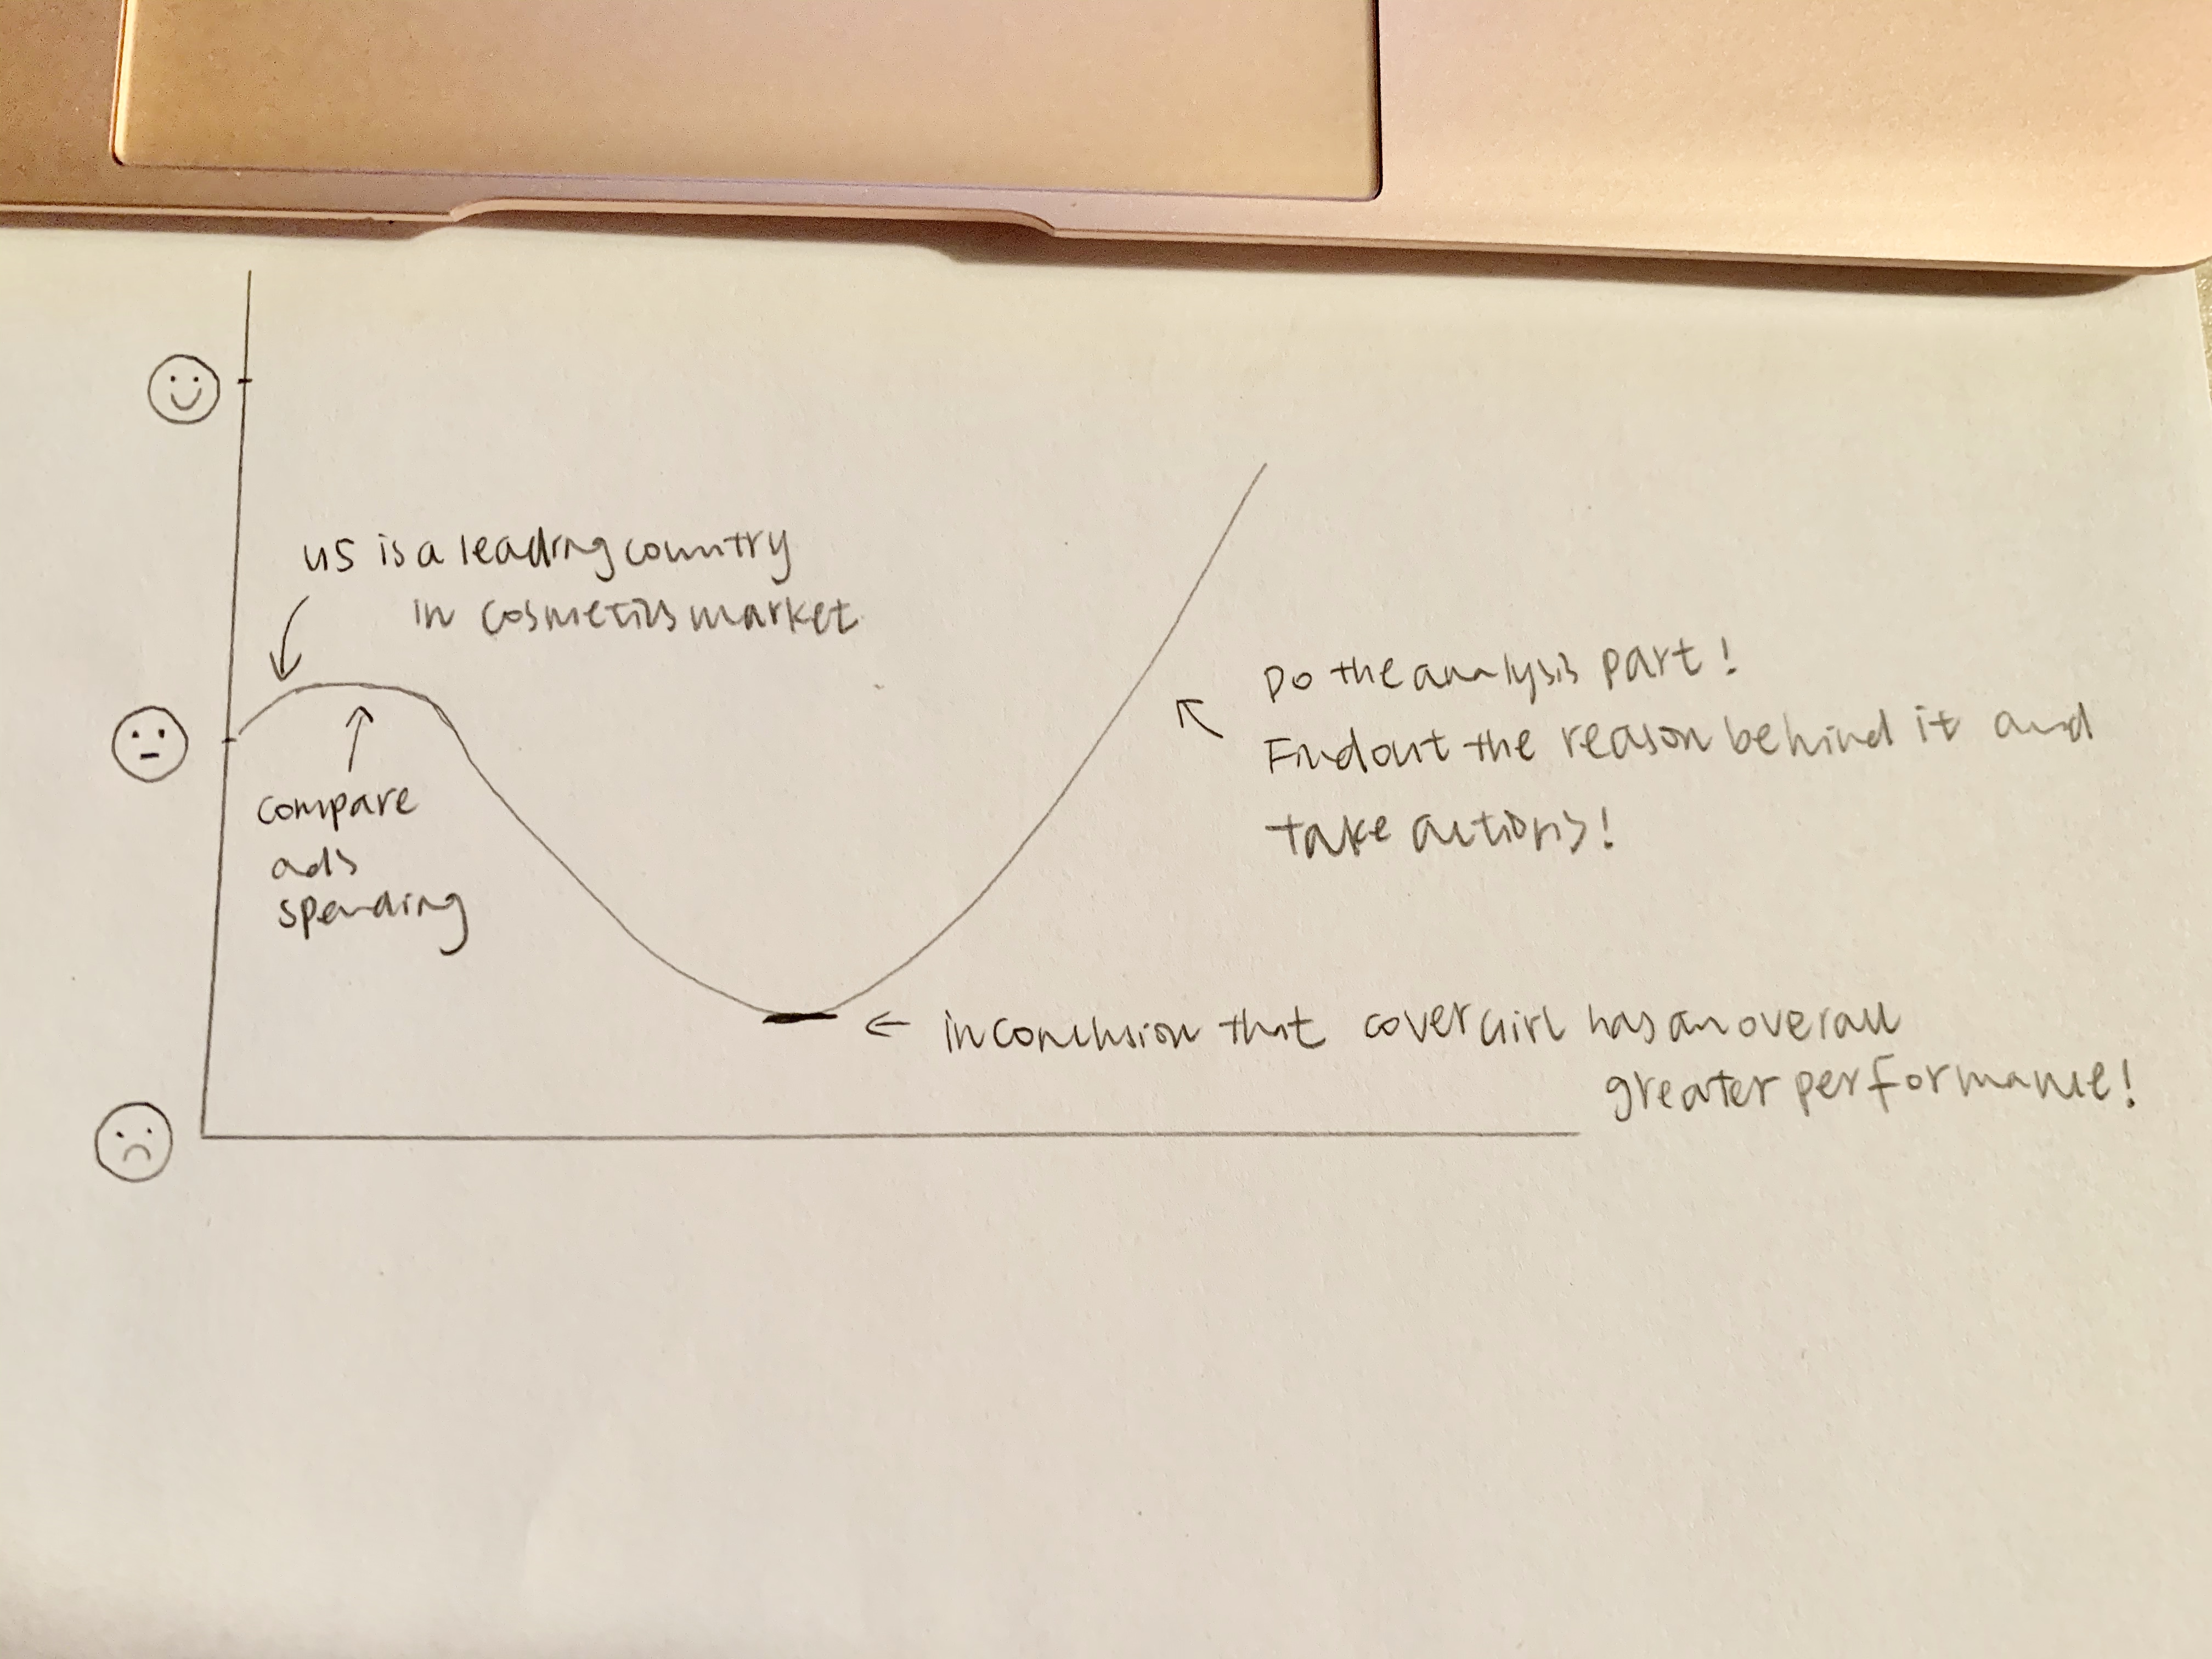 US is a leading country
in cosmetics market
compare
ads
spending
Do the analysis part!
Find out the reason behind it and
take actions!
in conclusion that covergirl has an overall
greater performance!